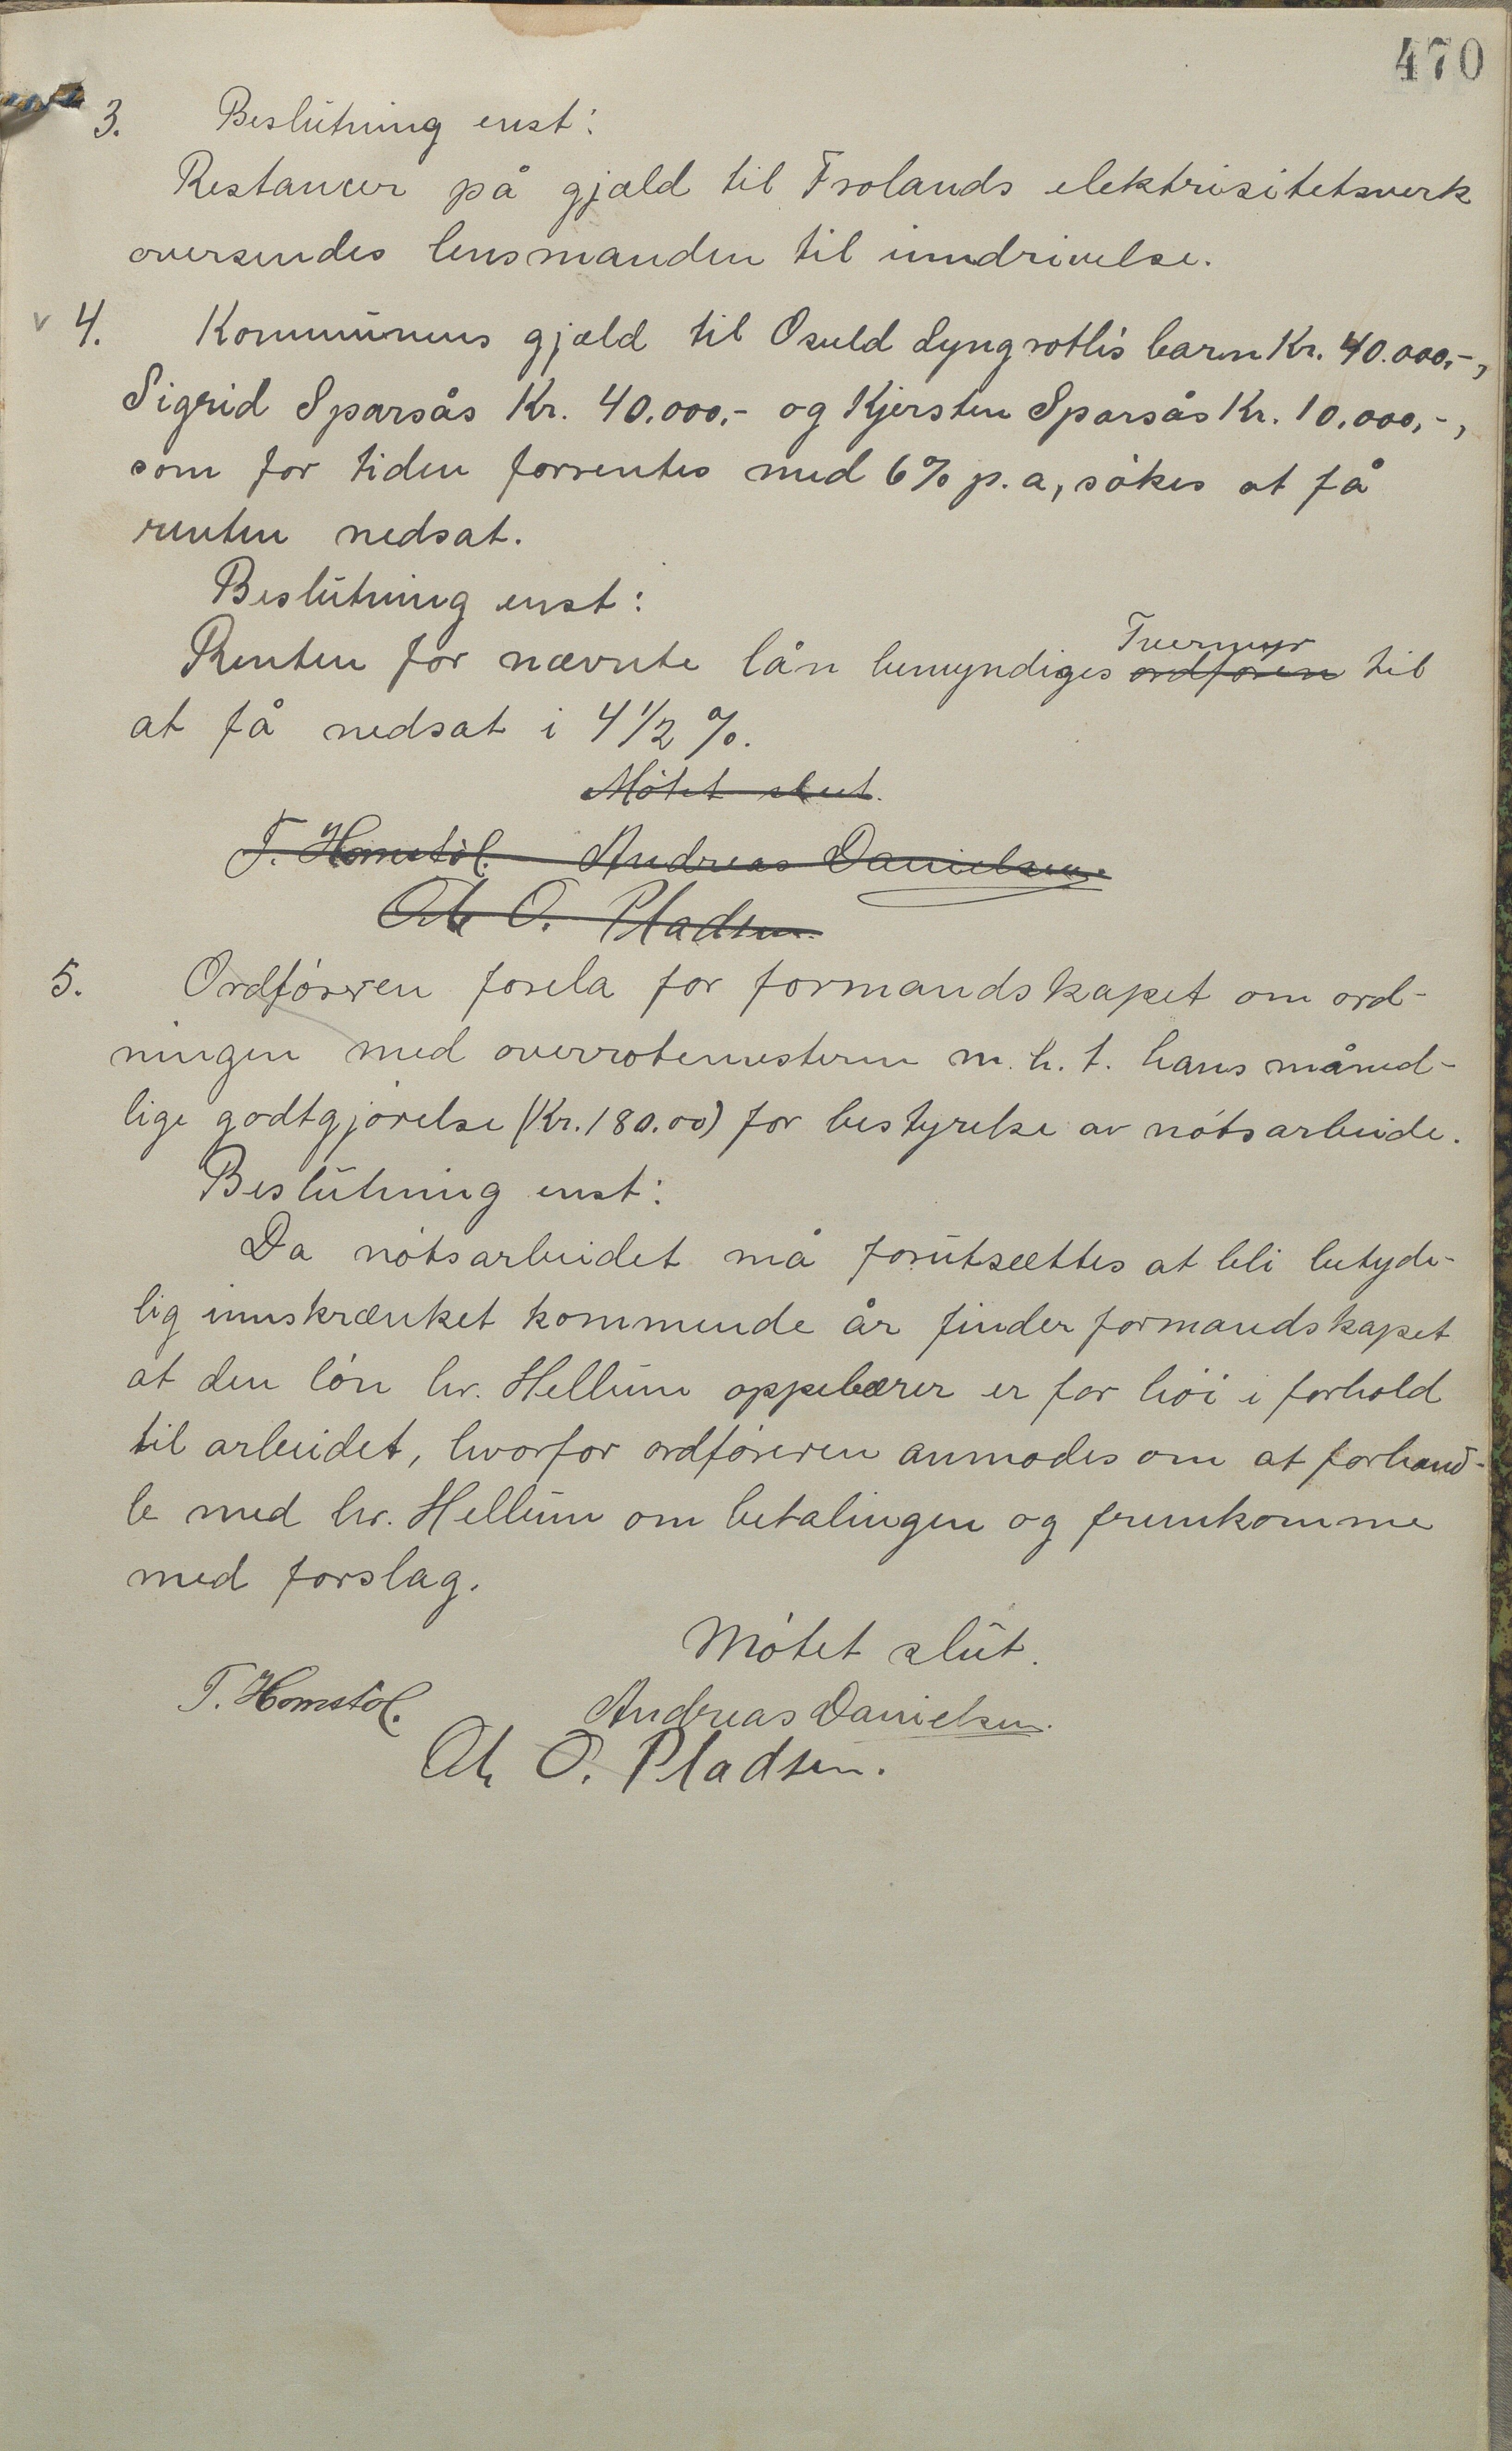 470
3. Beslutning enst:
Restancer på gjæld til Frolands elektrisitetsverk
oversendes lensmanden til inndrivelse.
v 4. Kommunens gjæld til Osuld Lyngrotlis barn Kr. 40.000,-,
Sigrid Sparsås Kr. 40.000,- og Kjersten Sparsås Kr. 10.000,-,
som for tiden forrentes med 6% p.a, søkes at få
renten nedsat.
Beslutning enst:
Tvermyr
Renten for nævnte lån bemyndiges ordføren til
at få nedsat i 4 1/2 %.
Møtet slut.
T. Homstøl. Andreas Danielsen.
O. Pladsen.
5. Ordføreren forela for formandskapet om ord-
ningen med overrotemesteren m.h.t. hans måned-
lige godtgjørelse (Kr. 180.00) for bestyrelse av nøtsarbeide.
Beslutning enst:
Da nøtsarbeidet må forutsættes at bli betyde-
lig innskrænket kommende år finder formandskapet
at den løn hr. Hellum oppebærer er for høi i forhold
til arbeidet, hvorfor ordføreren anmodes om at forhand-
le med hr. Hellum om betalingen og fremkomme
med forslag.
Møtet slut.
T. Homstøl. Andreas Danielsen.
O. Pladsen.